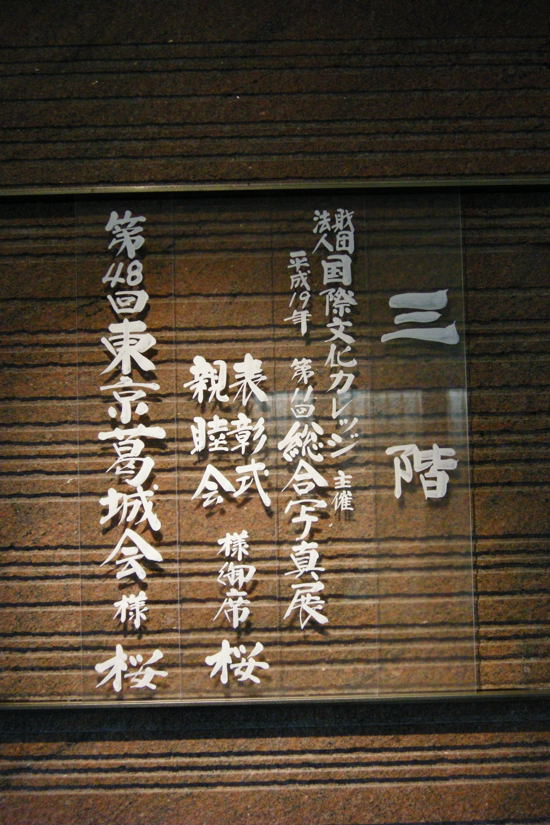 三階
財団法人 国際文化カレッジ 主催
平成19年 第14回 総合写真展
表彰式
親睦会
様御席 桜
第48回東京葛城会様 桜